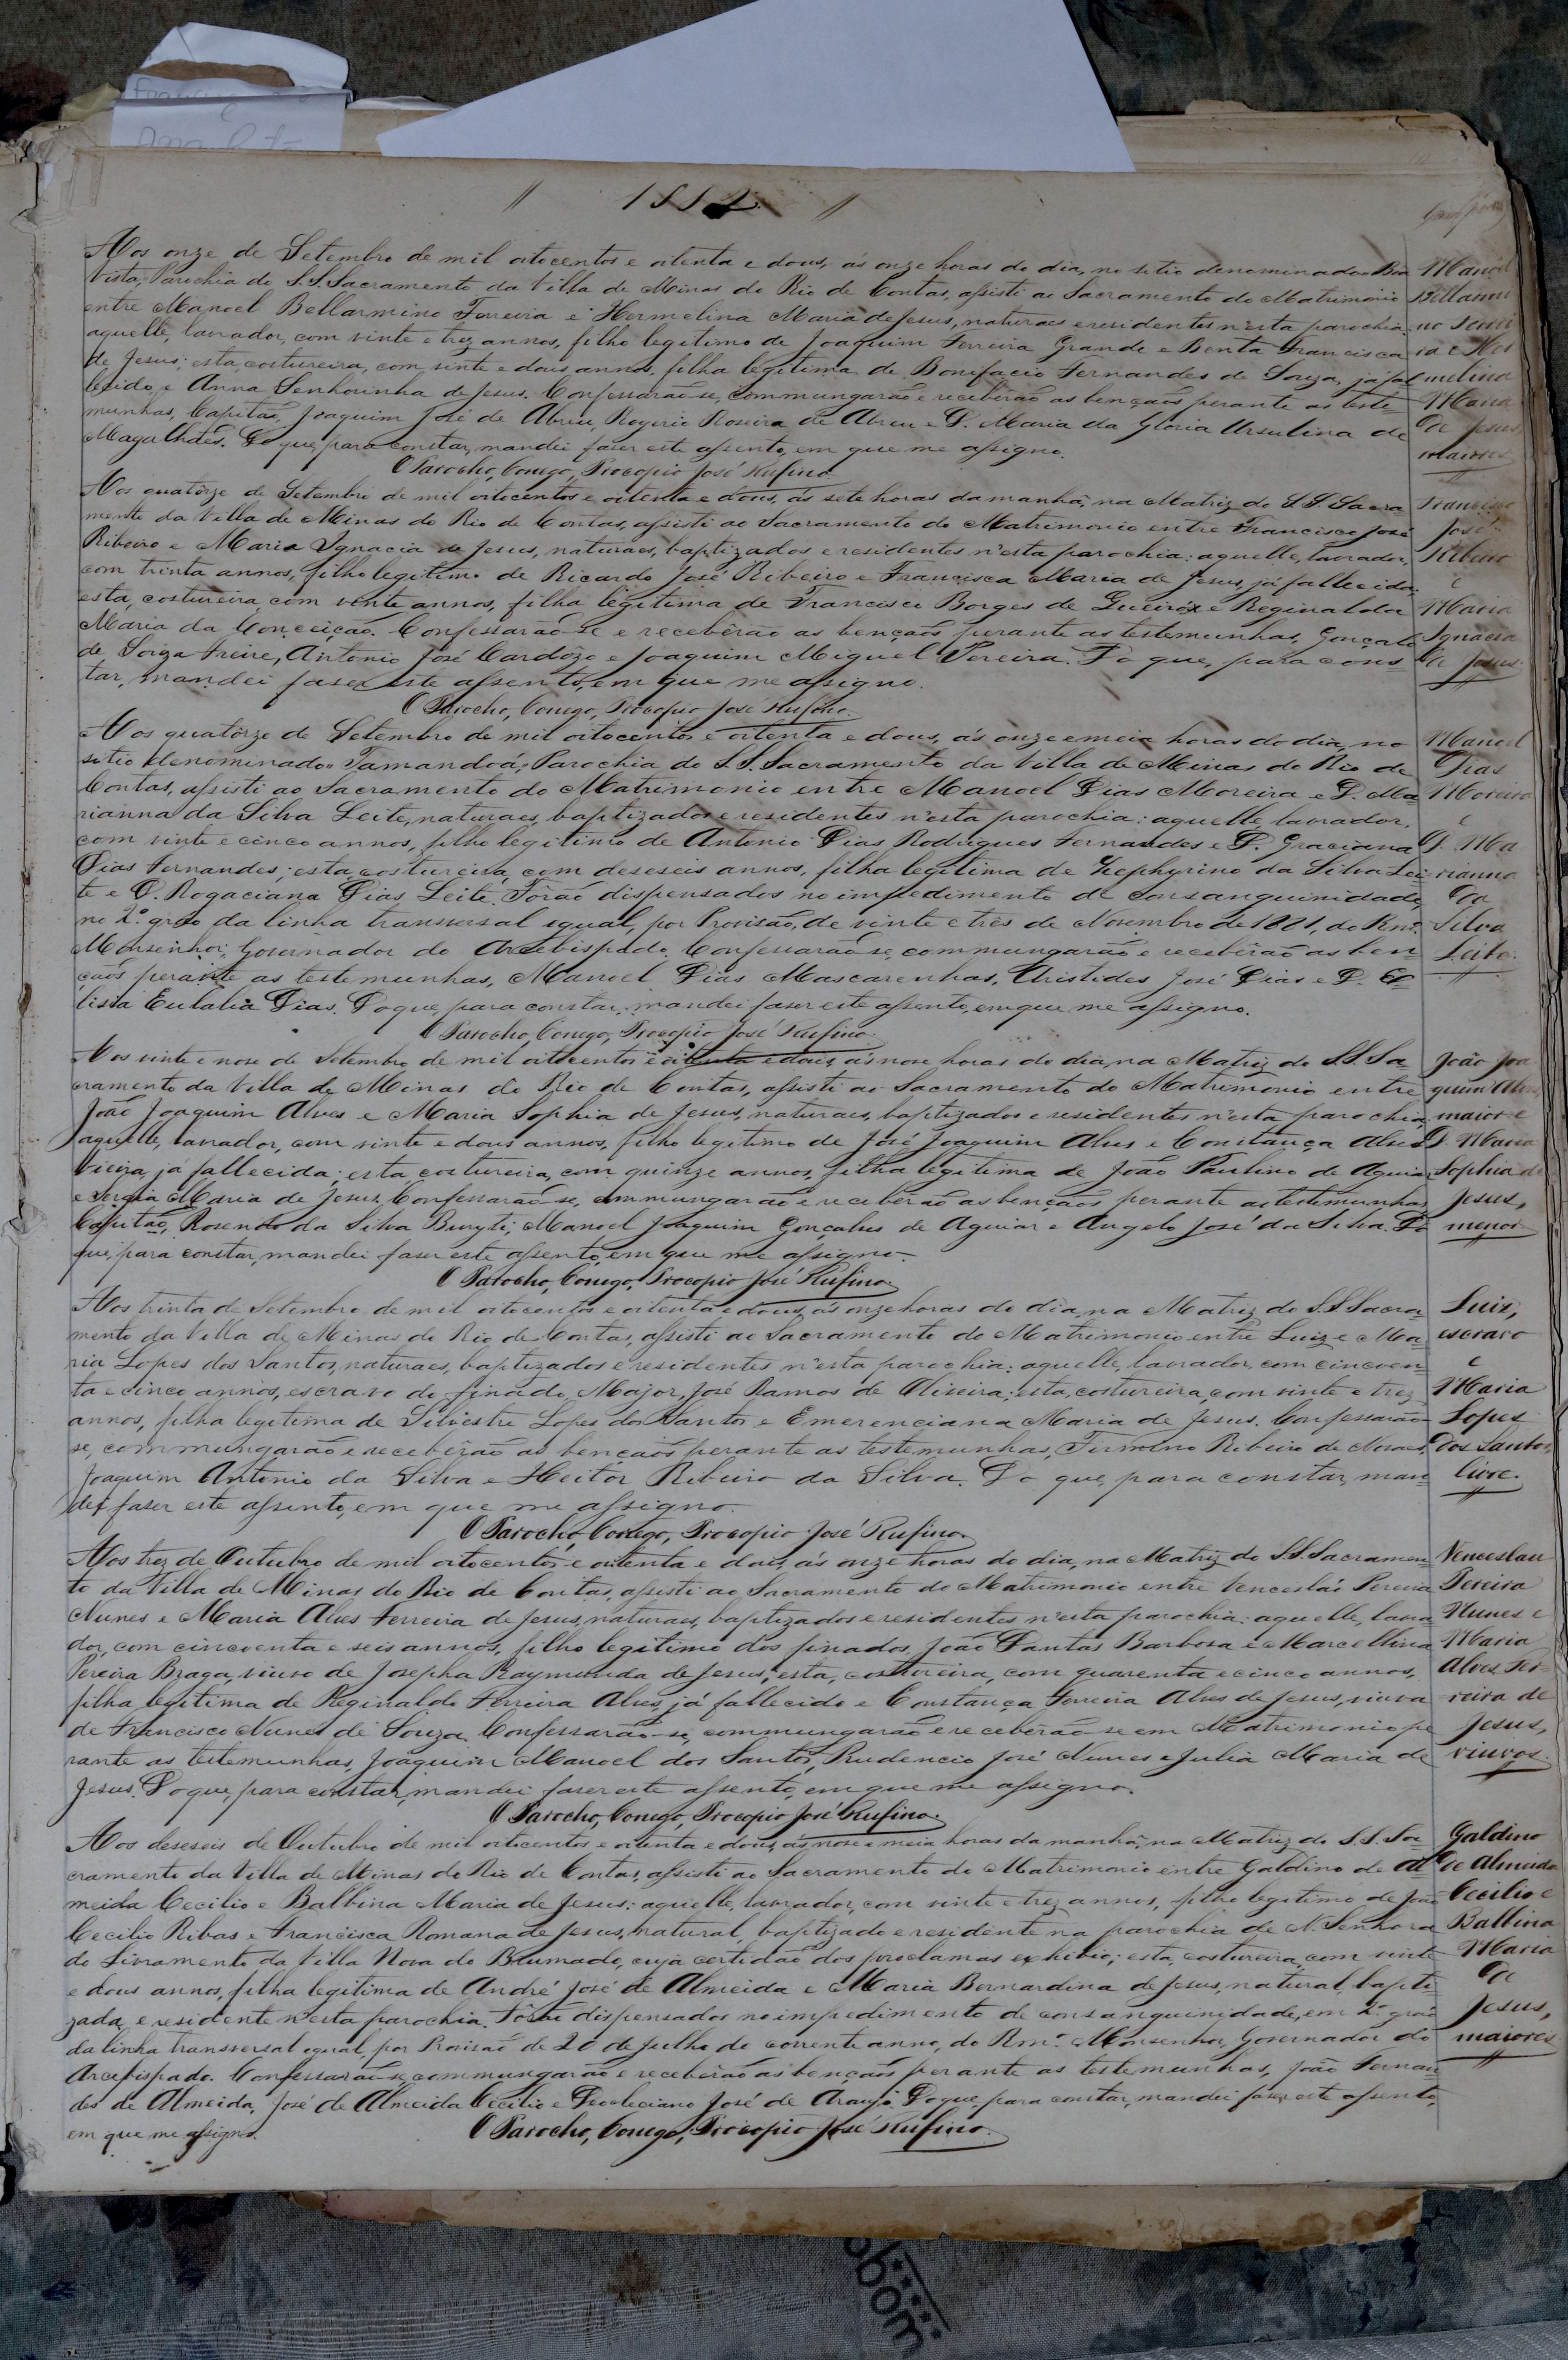 // 1882. //
Aos onze de Setembro de mil oitocentos e oitenta e dous, ás onze horas do dia, no sitio denominado "Bôa
Vista", Parochia do S.S. Sacramento da Villa de Minas do Rio de Contas, assisti ao Sacramento do Matrimonio
entre Manoel Bellarmino Ferreira e Hermelina Maria de Jesus, naturaes e residentes n'esta parochia:
aquelle, lavrador, com vinte e trez annos, filho legitimo de Joaquim Ferreira Grande e Benta Francisca
de Jesus; esta costureira, com vinte e dous annos, filha legitima de Bonifacio Fernandes de Souza, já fal
lecido, e Anna Senhorinha de Jesus. Confessarão-se, commungarão e receberão as bençaõs perante as teste-
munhas, Capitão, Joaquim José de Abreu, Rogerio Roseira de Abreu e D. Maria da Gloria Ursulina de
Magalhães. Do que, para constar, mandei faser este assento, em que me assigno.
O Parocho, Conego, Procopio José Rufino.
Manoel
Bellarmi
no Ferrei
ra e Her
melina
Maria
de Jesus,
maiores
Aos quatorze de Setembro de mil oitocentos e oitenta e dous, as sete horas da manhã, na Matriz do S.S. Sacra
mento da Villa de Minas do Rio de Contas, assisti ao Sacramento do Matrimonio entre Francisco José
Ribeiro e Maria Ignacia de Jesus, naturaes, baptizados e residentes n'esta parochia: aquelle, lavrador,
com trinta annos, filho legitimo de Ricardo José Ribeiro e Francisca Maria de Jesus, já fallecida:
esta, costureira, com vinte annos, filha legitima de Francisco Borges de Queiróz e Reginalda
Maria da Conceição. Confessarão-se e receberão as bençaõs perante as testemunhas, Gonçalo
de Souza Freire, Antonio José Cardozo e Joaquim Miguel Pereira. Do que, para cons
tar, mandei faser este assento, em que me assigno.
O Parocho, Conego, Procopio José Rufino.
Francisco
José
Ribeiro
e
Maria
Ignacia
de Jesus.
Aos quatôrze de Setembro de mil oitocentos e oitenta e dous, ás onze e meia horas do dia, no
sitio denominado "Tamandoá", Parochia do S.S. Sacramento da Villa de Minas do Rio de
Contas, assisti ao Sacramento do Matrimonio entre Manoel Dias Moreira e D. Ma
rianna da Silva Leite, naturaes, baptizados e residentes n'esta parochia: aquelle lavrador,
com vinte e cinco annos, filho legitimo de Antonio Dias Rodrigues Fernandes e D. Graciana
Dias Fernandes; esta costureira, com deseseis annos, filha legitima de Zephyrino da Silva Lei
te e D. Rogaciana Dias Leite. Forão dispensados no impedimento de consanguinidade,
no 2º gráo da linha transversal egual, por Provisão, de vinte e três de Novembro de 1881, do Rmº
Monsenhor, Governador do Arcebispado. Confessarão-se, commungarão e receberão as ben
çaõs perante as testemunhas, Manoel Dias Mascarenhas, Aristides José Dias e D. E
lissa Eulalia Dias. Do que, para constar, mandei faser este assento, em que me assigno.
O Parocho, Conego, Procopio José Rufino.
Manoel
Dias
Moreira
e
D. Ma
rianna
da
Silva
Leite.
Aos vinte e nove de Setembro de mil oitocentos e oitenta e dous, ás nove horas do dia, na Matriz do S.S. Sa-
cramento da Villa de Minas do Rio de Contas, assisti ao Sacramento do Matrimonio entre
João Joaquim Alves e Maria Sophia de Jesus, naturaes, baptizados e residentes n'esta parochia;
aquelle, lavrador, com vinte e dous annos, filho legitimo de José Joaquim Alves e Constança Alves
Vieira, já fallecida; esta costureira, com quinze annos, filha legitima de João Paulino de Aguiar
e Maria de Jesus. Confessarão-se, commungarão e receberão as bençaõs perante as testemunhas
Capitão, Rosendo da Silva Buryti, Manoel Joaquim Gonçalves de Aguiar e Angelo José da Silva. Do
que, para constar, mandei faser este assento, em que me assigno.
O Parocho, Conego, Procopio José Rufino.
João Joa
quim Alves,
maior e
D. Maria
Sophia de
Jesus,
menor
Aos trinta de Setembro de mil oitocentos e oitenta e dous, ás onze horas do dia, na Matriz do S.S. Sacra
mento da Villa de Minas do Rio de Contas, assisti ao Sacramento do Matrimonio entre Luiz e Ma-
ria Lopes dos Santos, naturaes, baptizados e residentes n'esta parochia: aquelle, lavrador, com cincoen-
ta e cinco annos, escravo do finado, Major, José Ramos de Oliveira; esta, costureira, com vinte e trez
annos, filha legitima de Silvestre Lopes dos Santos e Emerenciana Maria de Jesus. Confessarão-
se, commungarão e receberão as bençaõs perante as testemunhas, Firmino Ribeiro de Novaes,
Joaquim Antonio da Silva e Heitor Ribeiro da Silva. Do que, para constar, man
dei faser este assento, em que me assigno.
O Parocho, Conego, Procopio José Rufino.
Luiz,
escravo
e
Maria
Lopes
dos Santos,
livre.
Aos trez de Outubro de mil oitocentos e oitenta e dous, ás onze horas do dia, na Matriz do S.S. Sacramen-
to da Villa de Minas do Rio de Contas, assisti ao Sacramento do Matrimonio entre Vencesláo Pereira
Nunes e Maria Alves Ferreira de Jesus, naturaes, baptizados e residentes n'esta parochia: aquelle, lavra
dor, com cincoenta e seis annos, filho legitimo dos finados, João Dantas Barbosa e Marcellina
Pereira Braga, viuvo de Josepha Raymunda de Jesus; esta, costureira, com quarenta e cinco annos,
filha legitima de Reginaldo Ferreira Alves, já fallecido e Constança Ferreira Alves de Jesus, viuva
de Francisco Nunes de Souza. Confessarão-se, commungarão e receberão-se em Matrimonio pe
rante as testemunhas, Joaquim Manoel dos Santos, Prudencio José Nunes e Julia Maria de
Jesus. Do que, para constar, mandei faser este assento, em que me assigno.
O Parocho, Conego, Procopio José Rufino.
Venceslau
Pereira
Nunes e
Maria
Alves Fer-
reira de
Jesus,
viuvos.
Aos deseseis de Outubro de mil oitocentos e oitenta e dous, ás nove e meia horas da manhã, na Matriz do S.S. Sa-
cramento da Villa de Minas do Rio de Contas, assisti ao Sacramento do Matrimonio entre Galdino de Al-
meida Cecilio e Balbina Maria de Jesus: aquelle, lavrador, com vinte e trez annos, filho legitimo de João
Cecilio Ribas e Francisca Romana de Jesus, natural, baptizado e residente na parochia de N. Senhora
do Livramento da Villa Nova do Brumado, cuja certidão dos proclamas exhibio; esta, costureira, com vinte
e dous annos, filha legitima de André José de Almeida e Maria Bernardina de Jesus, natural, bapti
zada e residente n'esta parochia. Forão dispensados no impedimento de consanguinidade, em 2º gráo
da linha transversal egual, por Provisão de 20 de Julho do corrente anno, do Rmº Monsenhor, Governador do
Arcebispado. Confessarão-se, commungarão e receberão as bençaõs perante as testemunhas, João Fernan
des de Almeida, José de Almeida Cecilio e Deocleciano José de Araujo. Do que, para constar, mandei faser este assento,
em que me assigno. O Parocho, Conego, Procopio José Rufino.
Galdino
de Almeida
Cecilio e
Balbina
Maria
de
Jesus,
maiores